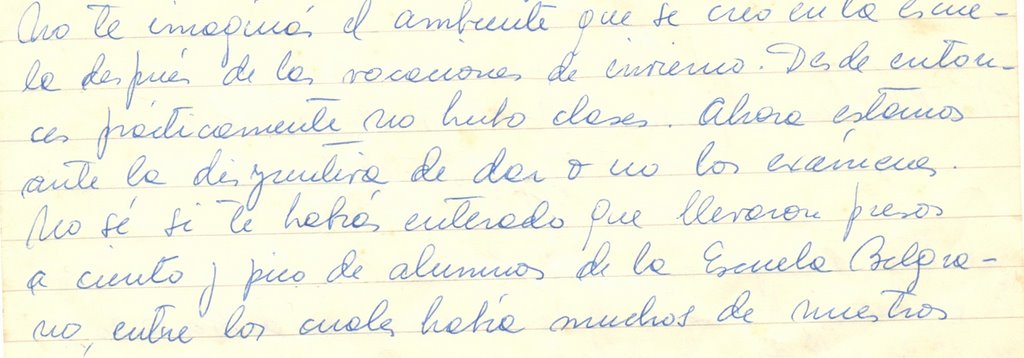 No te imaginás el ambiente que se creó en la escue-
la después de las vacaciones de invierno. Desde enton-
ces prácticamente no hubo clases. Ahora estamos
ante la disyuntiva de dar o no los exámenes.
No sé si te habás enterado que llevaron presos
a ciento y pico de alumnos de la Escuela Belgra-
no, entre los cuales había muchos de nuestros